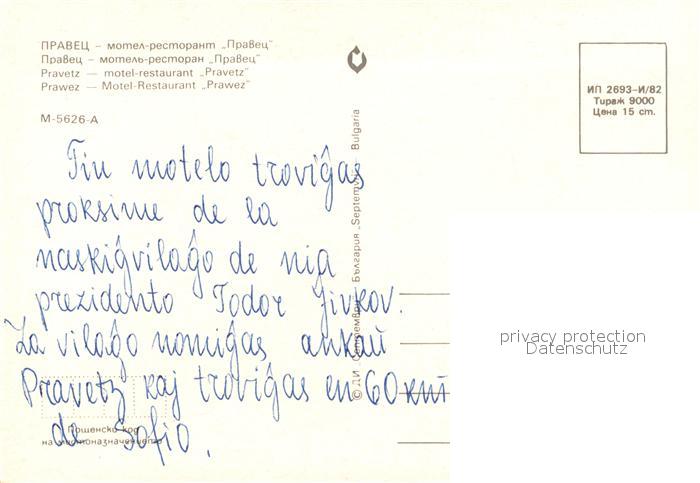 ПРАВЕЦ – мотел-ресторант „Правец"
Правец – мотель-ресторан „Правец"
Pravetz — motel-restaurant „Pravetz"
Prawez — Motel-Restaurant „Prawez"
М-5626-А
ИП 2693-И/82
Тираж 9000
Цена 15 ст.
Tiu motelo troviĝas
proksime de la
naskiĝvilaĝo de nia
prezidento Todor Jivkov.
La vilaĝo nomiĝas ankaŭ
Pravetz kaj troviĝas en 60 km
de Sofio.
© ДИ „Септември" България „Septemvri" Bulgaria
Пощенски код
на местоназначението
privacy protection
Datenschutz